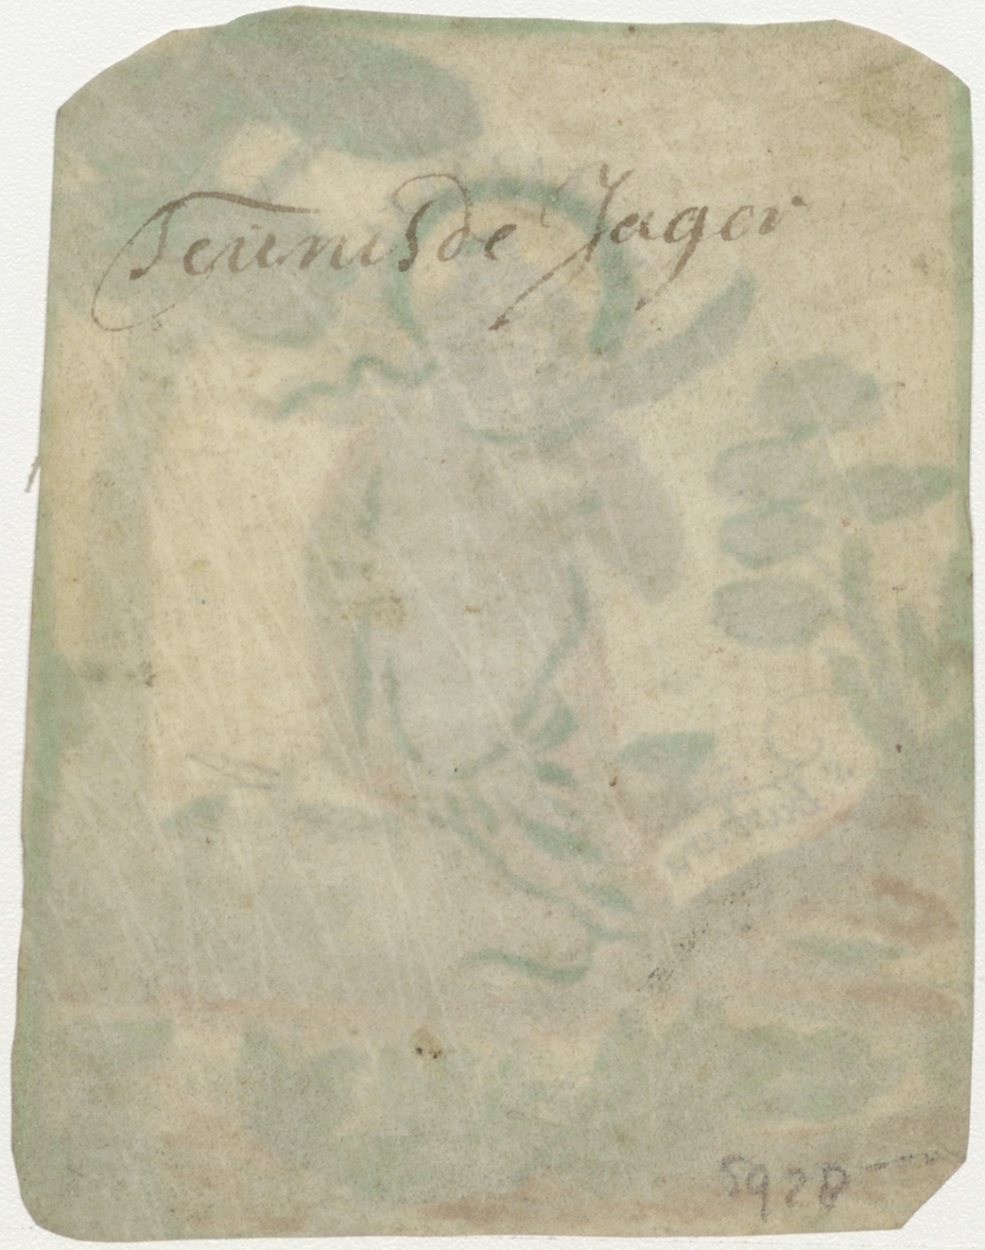 Teünis de Jager
5928